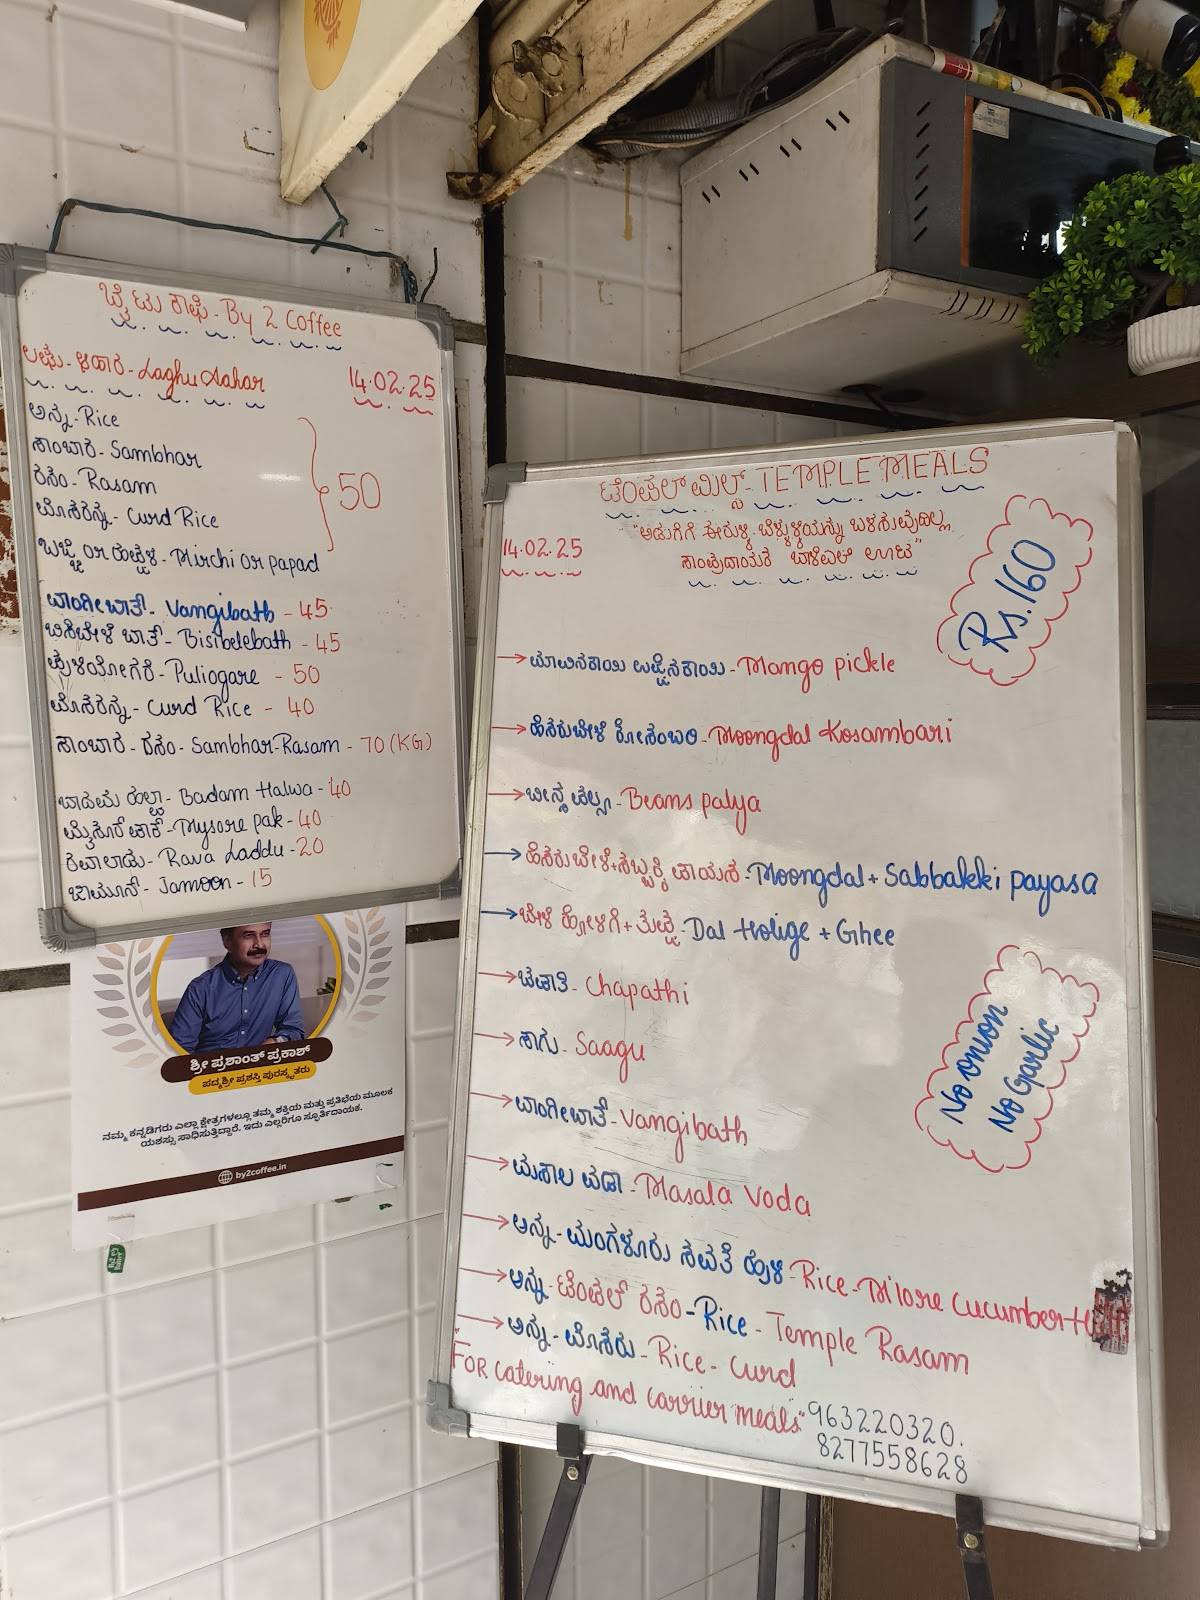 ಬೈಟು ಕಾಫಿ - By 2 Coffee
ಲಘು - ಆಹಾರ - Laghu Aahar
14.02.25
ಅನ್ನ - Rice
ಸಾಂಬಾರ - Sambhar
ರಸಂ - Rasam
ಮೊಸರನ್ನ - Curd Rice
ಬಜ್ಜಿ or ಹಪ್ಪಳ - Mirchi or papad
50
ವಾಂಗೀಬಾತ್ - Vangibath - 45
ಬಿಸಿಬೇಳೆ ಬಾತ್ - Bisibelebath - 45
ಪುಳಿಯೋಗರೆ - Puliogare - 50
ಮೊಸರನ್ನ - Curd Rice - 40
ಸಾಂಬಾರ - ರಸಂ - Sambhar-Rasam - 70 (KG)
ಬಾದಾಮ ಹಲ್ವಾ - Badam Halwa - 40
ಮೈಸೂರ್ ಪಾಕ್ - Mysore pak - 40
ರವಾಲಾಡು - Rava Laddu - 20
ಜಾಮೂನ್ - Jamoon - 15
ಶ್ರೀ ಪ್ರಶಾಂತ್ ಪ್ರಕಾಶ್
ಪದ್ಮಶ್ರೀ ಪ್ರಶಸ್ತಿ ಪುರಸ್ಕೃತರು
ನಮ್ಮ ಕನ್ನಡಿಗರು ಎಲ್ಲಾ ಕ್ಷೇತ್ರಗಳಲ್ಲೂ ತಮ್ಮ ಶಕ್ತಿಯ ಮತ್ತು ಪ್ರತಿಭೆಯ ಮೂಲಕ
ಯಶಸ್ಸು ಸಾಧಿಸುತ್ತಿದ್ದಾರೆ. ಇದು ಎಲ್ಲರಿಗೂ ಸ್ಫೂರ್ತಿದಾಯಕ.
by2coffee.in
ಟೆಂಪಲ್ ಮಿಲ್ಸ್ - TEMPLE MEALS
"ಅಡುಗೆಗೆ ಈರುಳ್ಳಿ ಬೆಳ್ಳುಳ್ಳಿಯನ್ನು ಬಳಸುವುದಿಲ್ಲ
14.02.25
ಸಾಂಪ್ರದಾಯಕ ಬಾಳೆಎಲೆ ಊಟ"
Rs.160
→ಮಾವಿನಕಾಯಿ ಉಪ್ಪಿನಕಾಯಿ - Mango pickle
→ಹೆಸರುಬೇಳೆ ಕೋಸಂಬರಿ - Moongdal Kosambari
→ಬೀನ್ಸ ಪಲ್ಯ - Beans palya
→ಹೆಸರುಬೇಳೆ+ಸಬ್ಬಕ್ಕಿ ಪಾಯಸ - Moongdal + Sabbakki payasa
→ಬೇಳೆ ಹೋಳಿಗೆ + ತುಪ್ಪ - Dal Holige + Ghee
→ಚಪಾತಿ - Chapathi
→ಸಾಗು - Saagu
No onion
No Garlic
→ವಾಂಗೀಬಾತ್ - Vangibath
→ಮಸಾಲ ವಡಾ - Masala Voda
→ಅನ್ನ - ಮಂಗಳೂರು ಸವತೆ ಹುಳಿ - Rice - Mlore Cucumber
→ಅನ್ನ - ಟೆಂಪಲ್ ರಸಂ - Rice - Temple Rasam
→ಅನ್ನ - ಮೊಸರು - Rice - Curd
"For catering and carrier meals" 963220320.
8277558628